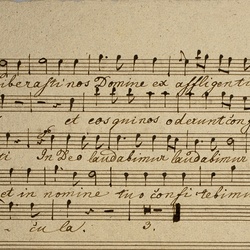 liberasti nos Domine ex affligenti
et eos qui nos oderunt conf
ti In Deo laudabimur laudabimur
et in nomine tuo confitebimu
cu la. 3.